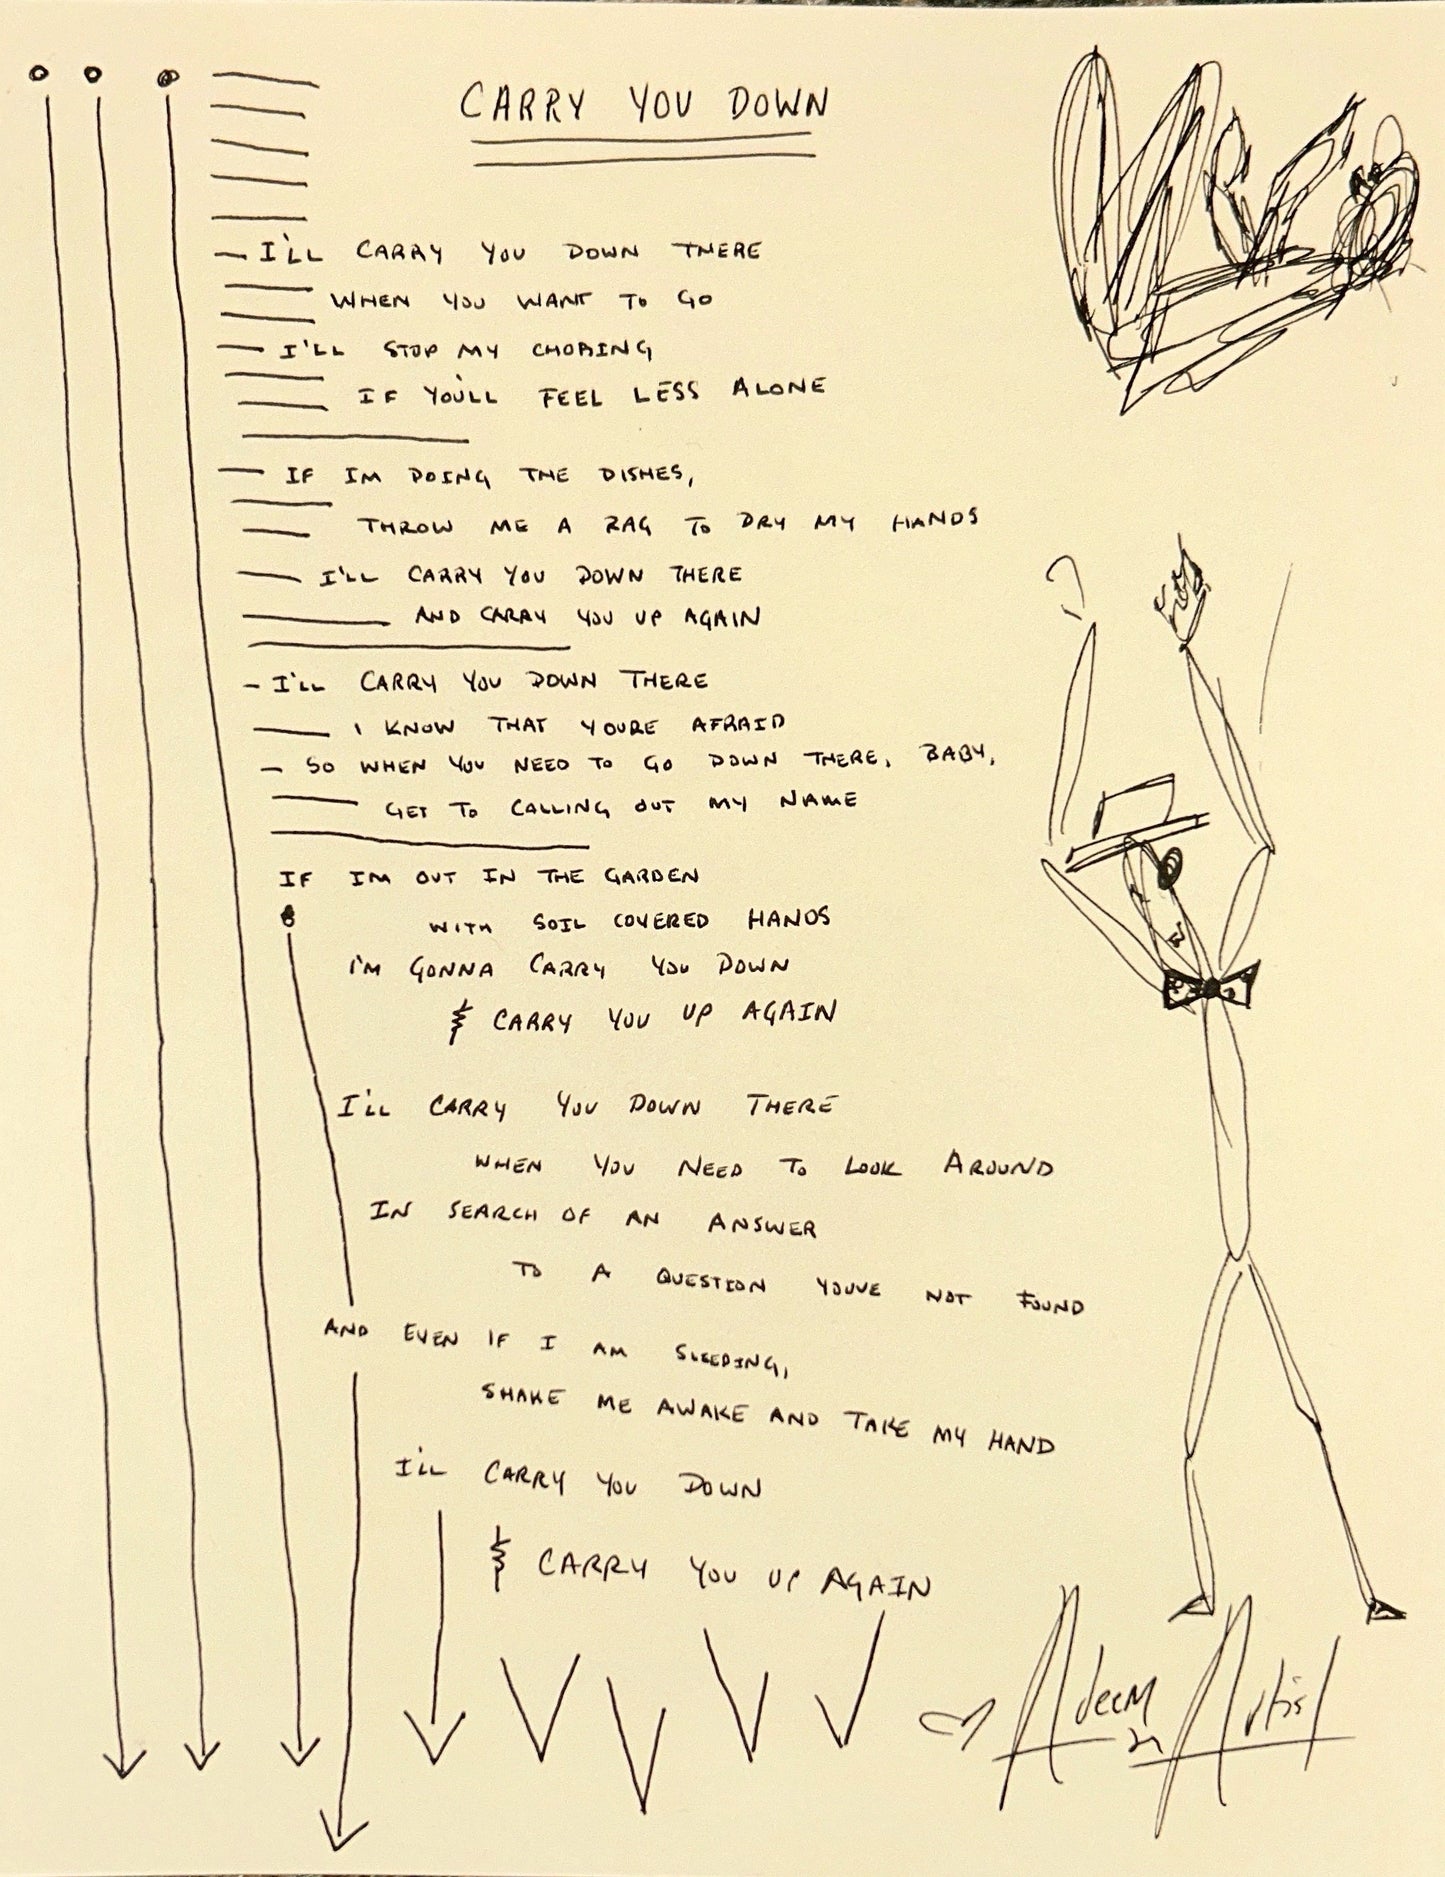 CARRY YOU DOWN
I'LL CARRY YOU DOWN THERE
WHEN YOU WANT TO GO
I'LL STOP MY CHORING
IF YOU'LL FEEL LESS ALONE
IF IM DOING THE DISHES,
THROW ME A RAG TO DRY MY HANDS
I'LL CARRY YOU DOWN THERE
AND CARRY YOU UP AGAIN
I'LL CARRY YOU DOWN THERE
I KNOW THAT YOURE AFRAID
SO WHEN YOU NEED TO GO DOWN THERE, BABY,
GET TO CALLING OUT MY NAME
IF IM OUT IN THE GARDEN
WITH SOIL COVERED HANDS
I'M GONNA CARRY YOU DOWN
& CARRY YOU UP AGAIN
I'LL CARRY YOU DOWN THERE
WHEN YOU NEED TO LOOK AROUND
IN SEARCH OF AN ANSWER
TO A QUESTION YOUVE NOT FOUND
AND EVEN IF I AM SLEEPING,
SHAKE ME AWAKE AND TAKE MY HAND
I'LL CARRY YOU DOWN
& CARRY YOU UP AGAIN
Adeem Artist